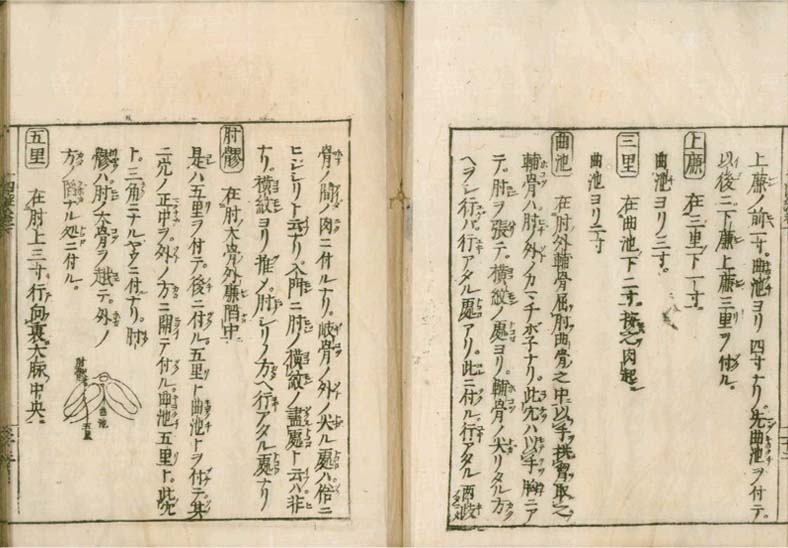 上廉ノ前一寸。曲池ヨリ四寸ナリ。先曲池ヲ付テ。
以後ニ下廉上廉三里ヲ付ル。
上廉 在三里下一寸。
曲池ヨリ三寸。
三里 在曲池下二寸。按之肉起。
曲池ヨリ二寸
曲池 在肘外輔骨屈肘曲骨之中以手拱胸取之
輔骨ハ肘ノ外ノカマチボ子ナリ。此穴ハ以手ヲ胸ニア
テ。肘ヲ張テ。横紋ノ處ヨリ。輔骨ノ尖リタル方
ヘヲシ行バ行アタル處アリ。此ニ付ル。行アタル 両岐
骨ノ間ノ肉ニ付ルナリ。岐骨ノ外ノ尖ル處ハ俗ニ
ヒジシリト云ナリ。入門ニ肘ノ横紋ノ盡處ト云ハ非
ナリ。横紋ヨリ推ノ肘シリノ方ヘ行アタル處ナリ
肘髎 在肘大骨外廉陷中
是ハ五里ヲ付テ。後ニ付ル。五里ト曲池トヲ付テ。其
二穴ノ正中ヲ。外ノ方ニ開テ付ル。曲池五里ト。此穴
ト。三角ニナルヤウニ付ナリ。肘
髎ハ肘ノ大骨ヲ越テ。外ノ
方ノ陷ナル処ニ付ル。
肘髎
曲池
五里
五里 在肘上三寸。行向裏大脉中央。